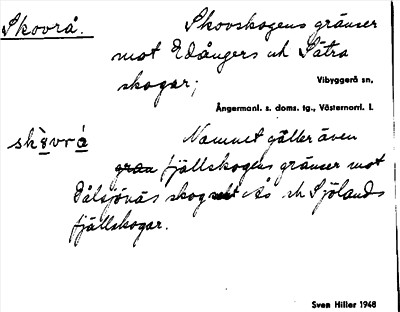 Skovrå. Skovskogens gränser
mot Edångers och Sätra
skogar;
Vibyggerå sn,
Ångermanl. s. doms. tg., Västernorrl. l.
skò̤vrá̤ Namnet gäller även
gran fjällskogens gränser mot
Dålsjönäs skog och Sjölands
fjällskogar.
Sven Hiller 1948